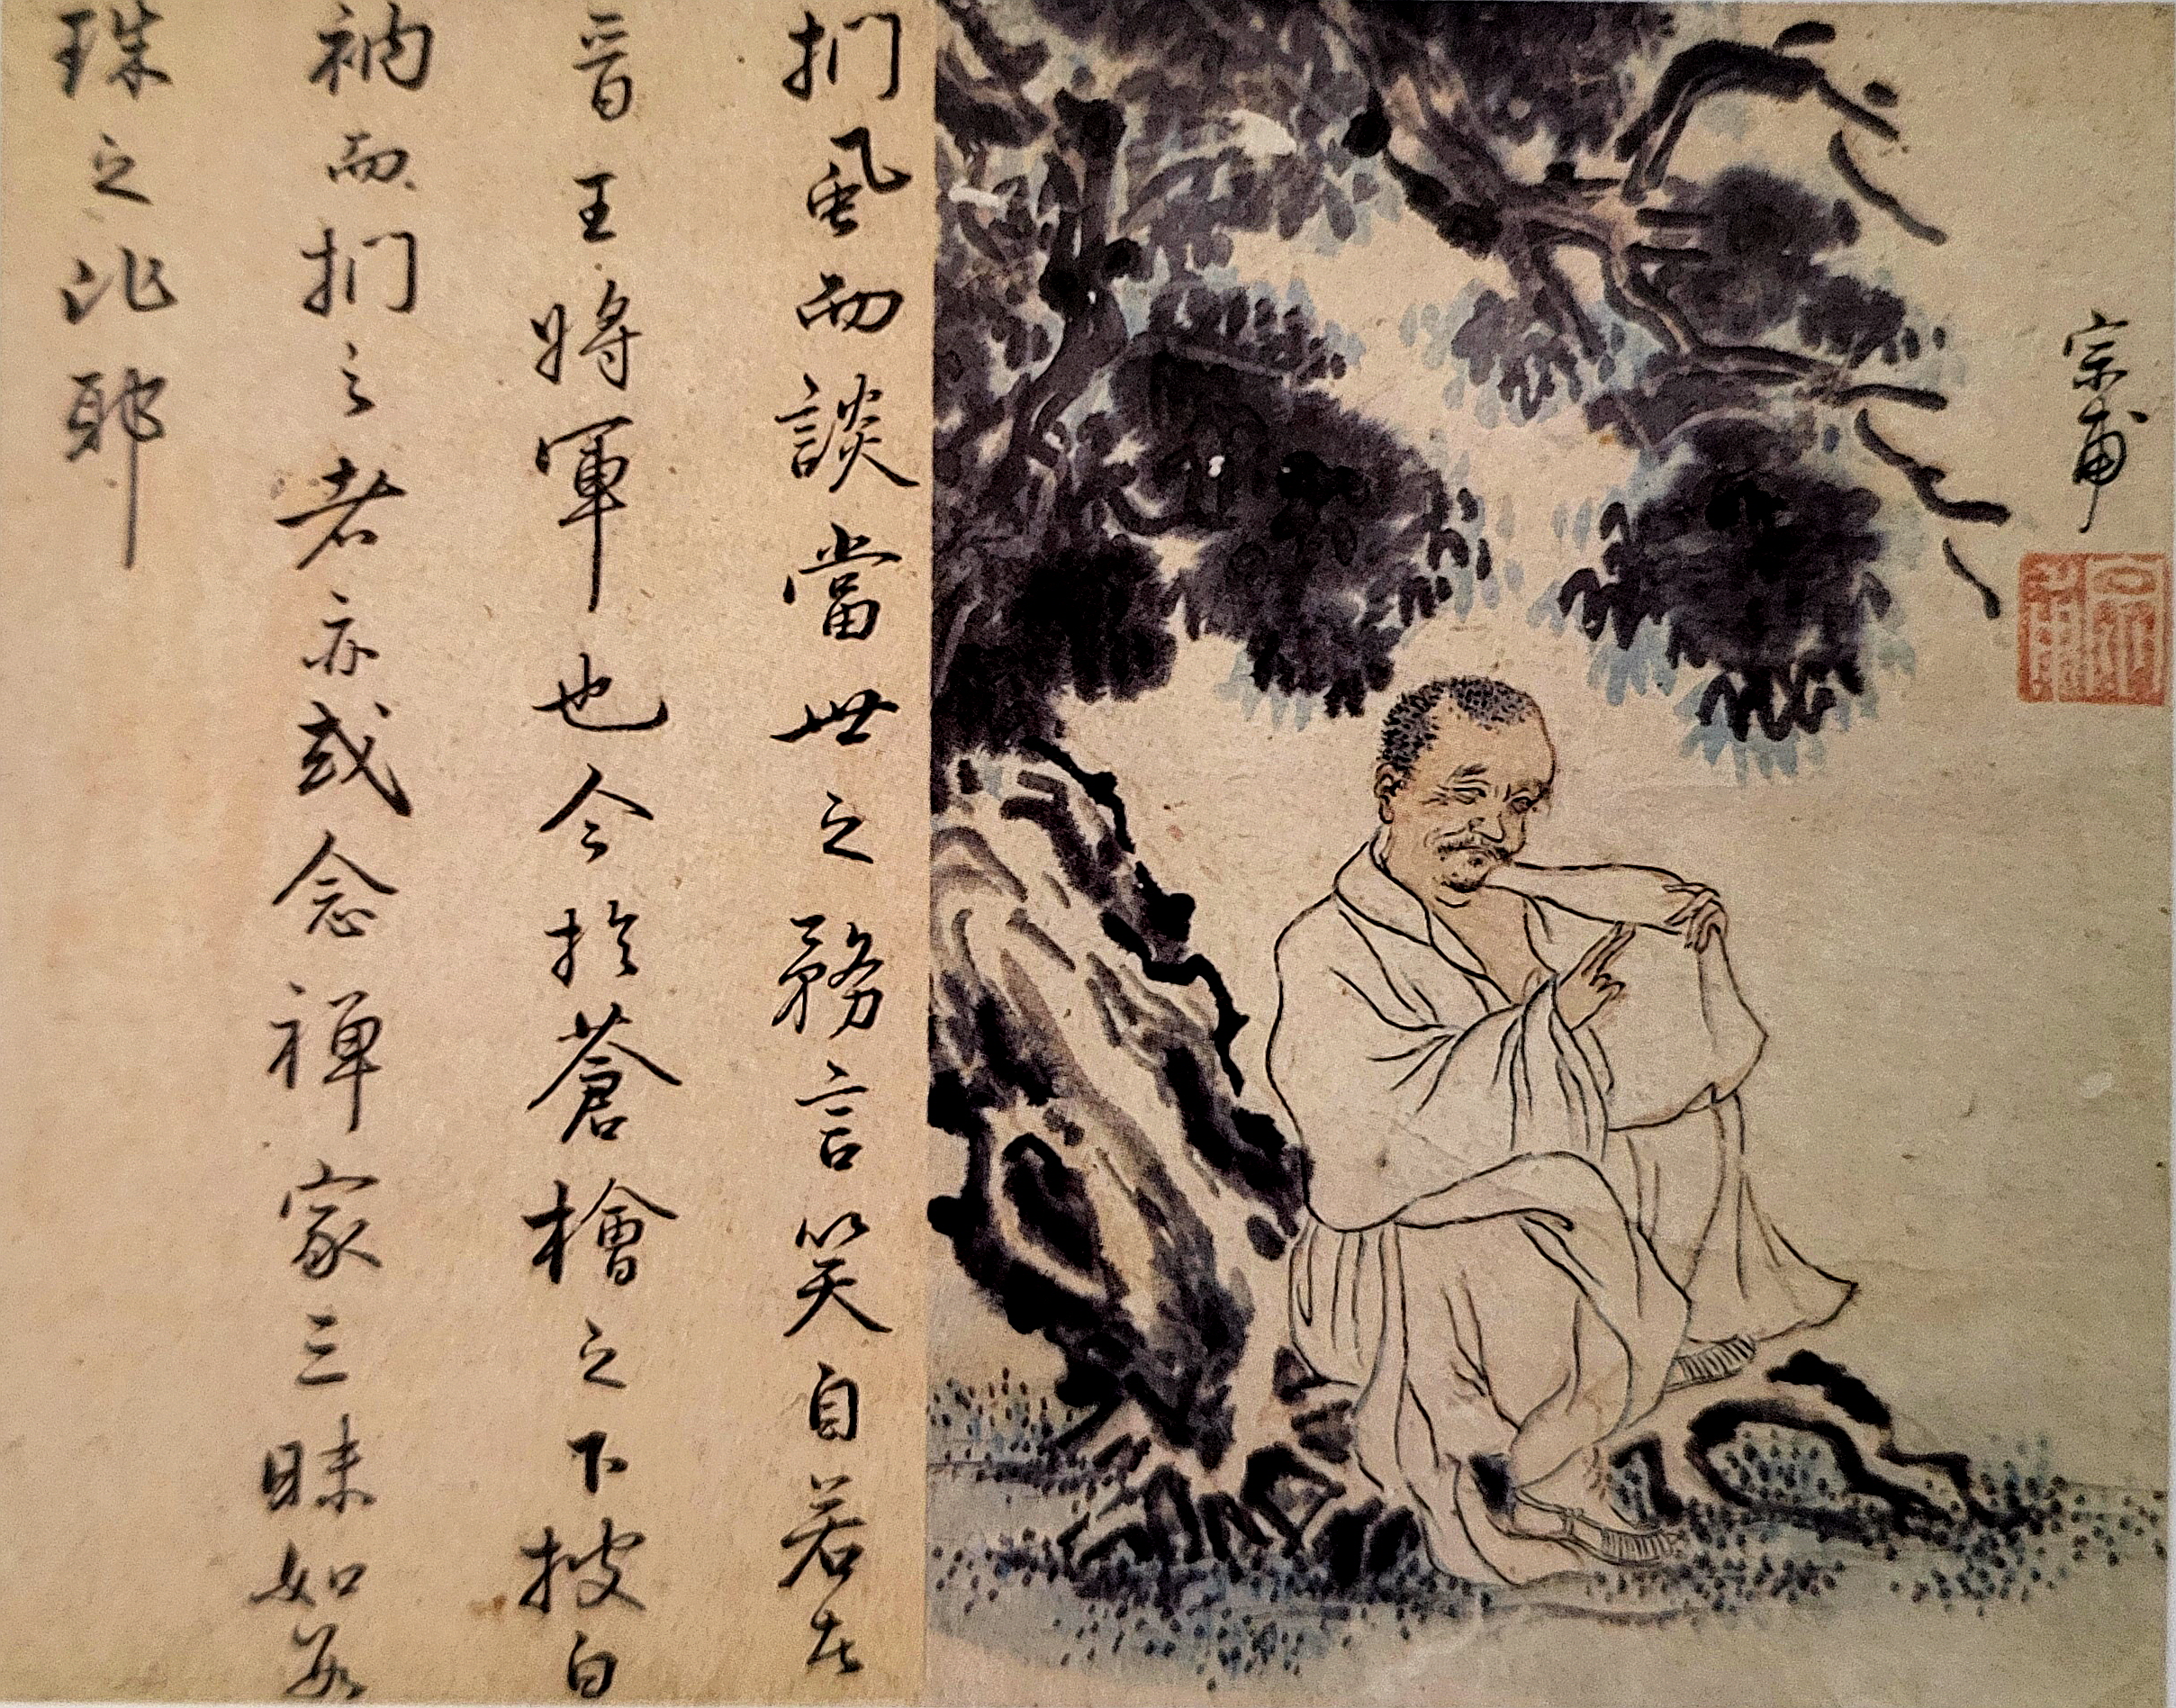 宗甫
宗甫
捫虱而談當世之務言笑自若者
晉王將軍也今於蒼檜之下披白
衲而捫之者亦或念禪家三昧如數
珠之比耶